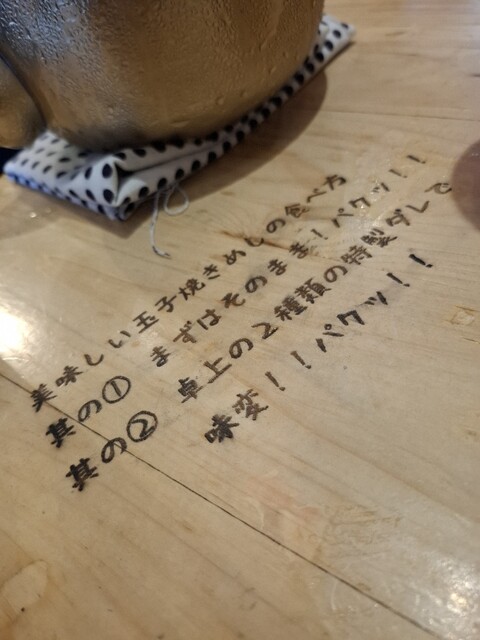 美味しい玉子焼きめしの食べ方
其の① まずはそのまま!パクッ!!
其の② 卓上の2種類の特製ダレで
味変!!パクッ!!